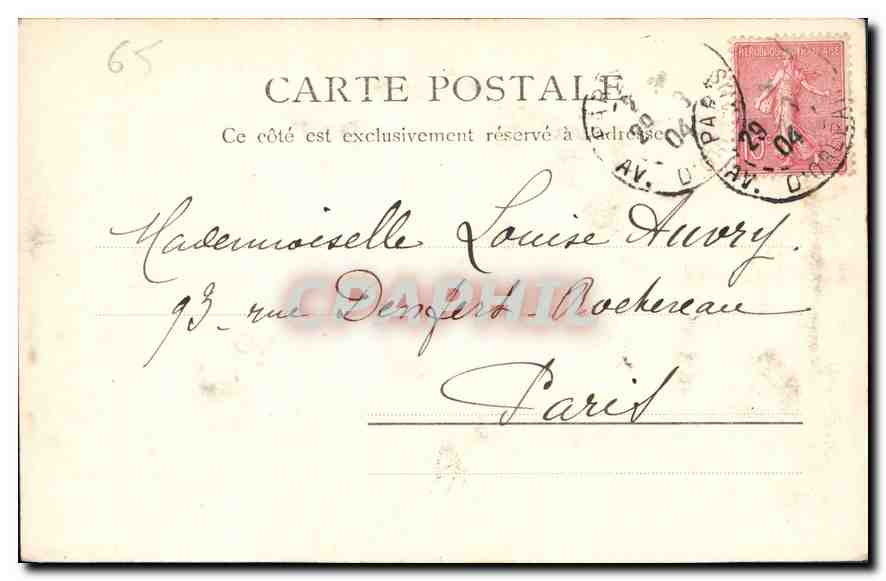 65
CARTE POSTALE
Ce côté est exclusivement réservé à l'adresse
REPUBLIQUE FRANÇAISE
10
PARIS
29
04
AV. D'ORLEANS
29
04
AV. D'
Mademoiselle Louise Auvry.
93 - rue Denfert-Rochereau
Paris
CPAPHIL